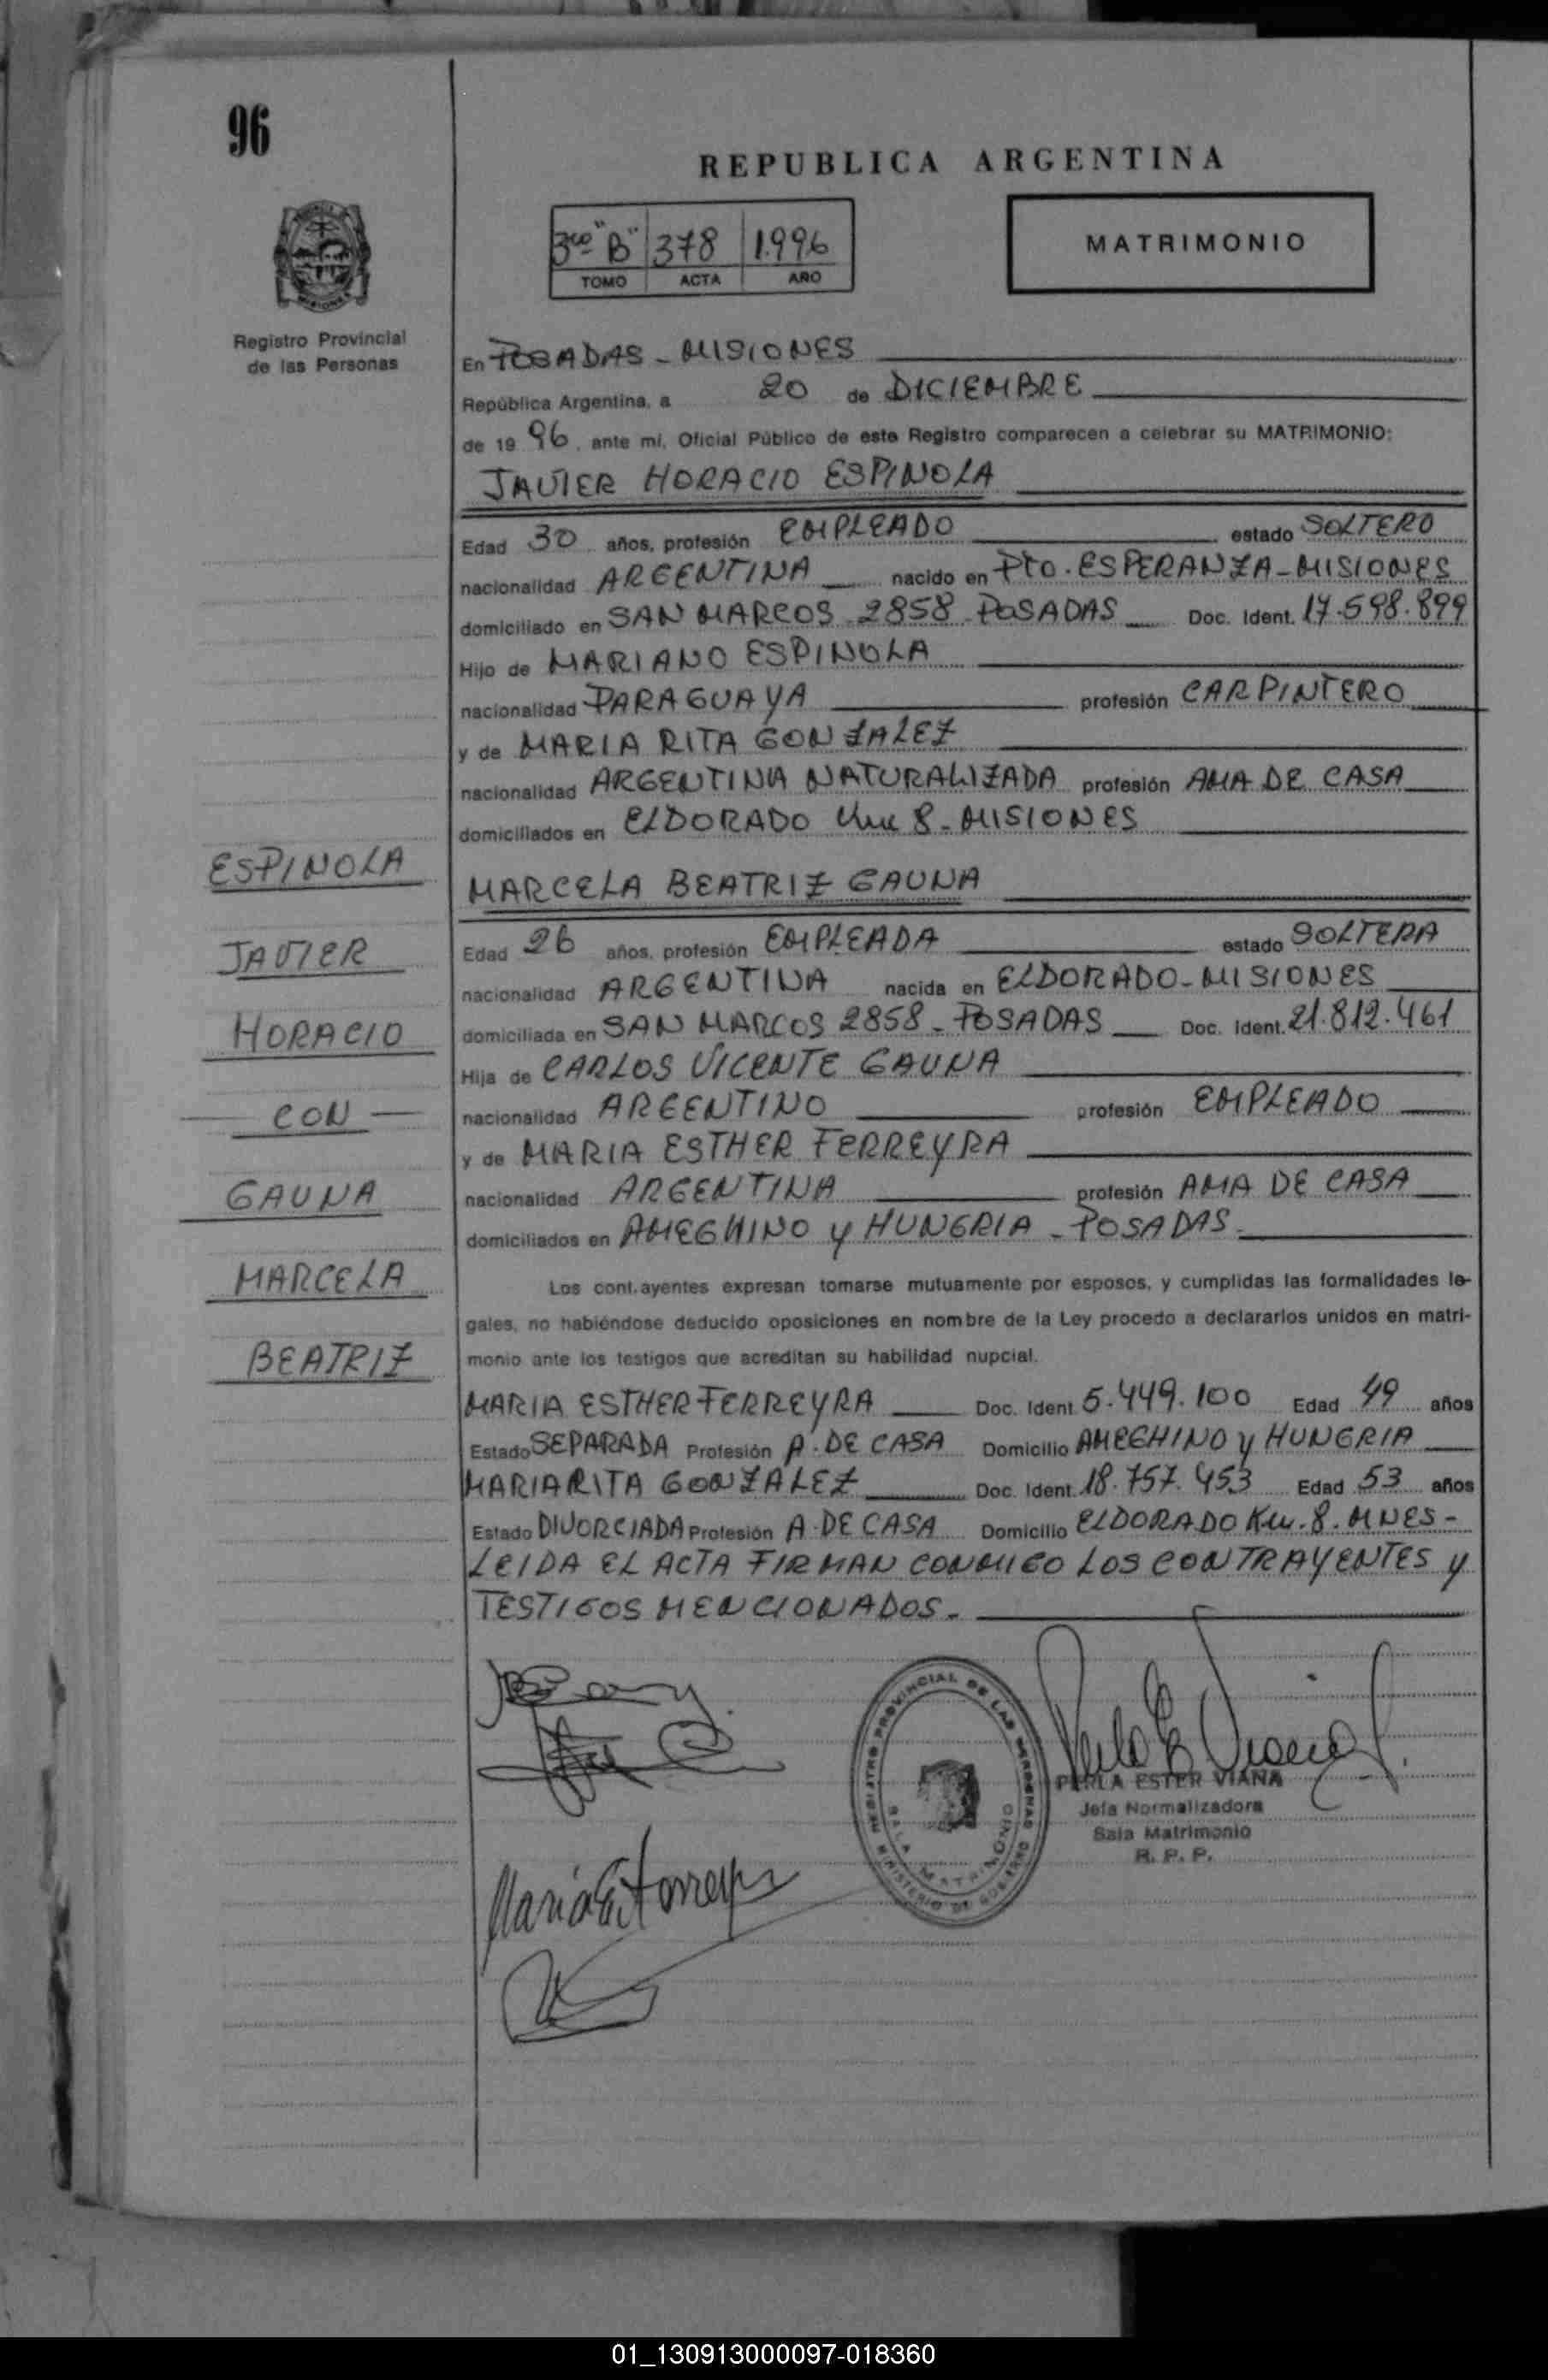 96
REPUBLICA ARGENTINA
3ro "B" 378 1.996
TOMO ACTA AÑO
MATRIMONIO
Registro Provincial
de las Personas
En POSADAS - MISIONES
República Argentina, a 20 de DICIEMBRE
de 19 96, ante mí, Oficial Público de este Registro comparecen a celebrar su MATRIMONIO:
JAVIER HORACIO ESPINOLA
Edad 30 años, profesión EMPLEADO estado SOLTERO
nacionalidad ARGENTINA nacido en Pto. ESPERANZA - MISIONES
domiciliado en SAN MARCOS 2858 - POSADAS Doc. Ident. 17.598.899
Hijo de MARIANO ESPINOLA
nacionalidad PARAGUAYA profesión CARPINTERO
y de MARIA RITA GONZALEZ
nacionalidad ARGENTINA NATURALIZADA profesión AMA DE CASA
domiciliados en ELDORADO Km 8 - MISIONES
MARCELA BEATRIZ GAUNA
Edad 26 años, profesión EMPLEADA estado SOLTERA
nacionalidad ARGENTINA nacida en ELDORADO - MISIONES
domiciliada en SAN MARCOS 2858 - POSADAS Doc. Ident. 21.812.461
Hija de CARLOS VICENTE GAUNA
nacionalidad ARGENTINO profesión EMPLEADO
y de MARIA ESTHER FERREYRA
nacionalidad ARGENTINA profesión AMA DE CASA
domiciliados en AMEGHINO y HUNGRIA - POSADAS -
ESPINOLA
JAVIER
HORACIO
— CON —
GAUNA
MARCELA
BEATRIZ
Los cont.ayentes expresan tomarse mutuamente por esposos, y cumplidas las formalidades le-
gales, no habiéndose deducido oposiciones en nombre de la Ley procedo a declararlos unidos en matri-
monio ante los testigos que acreditan su habilidad nupcial.
MARIA ESTHER FERREYRA Doc. Ident. 5.449.100 Edad 49 años
Estado SEPARADA Profesión A. DE CASA Domicilio AMEGHINO y HUNGRIA
MARIA RITA GONZALEZ Doc. Ident. 18.757.453 Edad 53 años
Estado DIVORCIADA Profesión A. DE CASA Domicilio ELDORADO Km. 8. MNES -
LEIDA EL ACTA FIRMAN CONMIGO LOS CONTRAYENTES y
TESTIGOS MENCIONADOS.
REGISTRO PROVINCIAL DE LAS PERSONAS
SALA MATRIMONIO
MINISTERIO DE GOBIERNO
PERLA ESTER VIANA
Jefa Normalizadora
Sala Matrimonio
R. P. P.
01_130913000097-018360